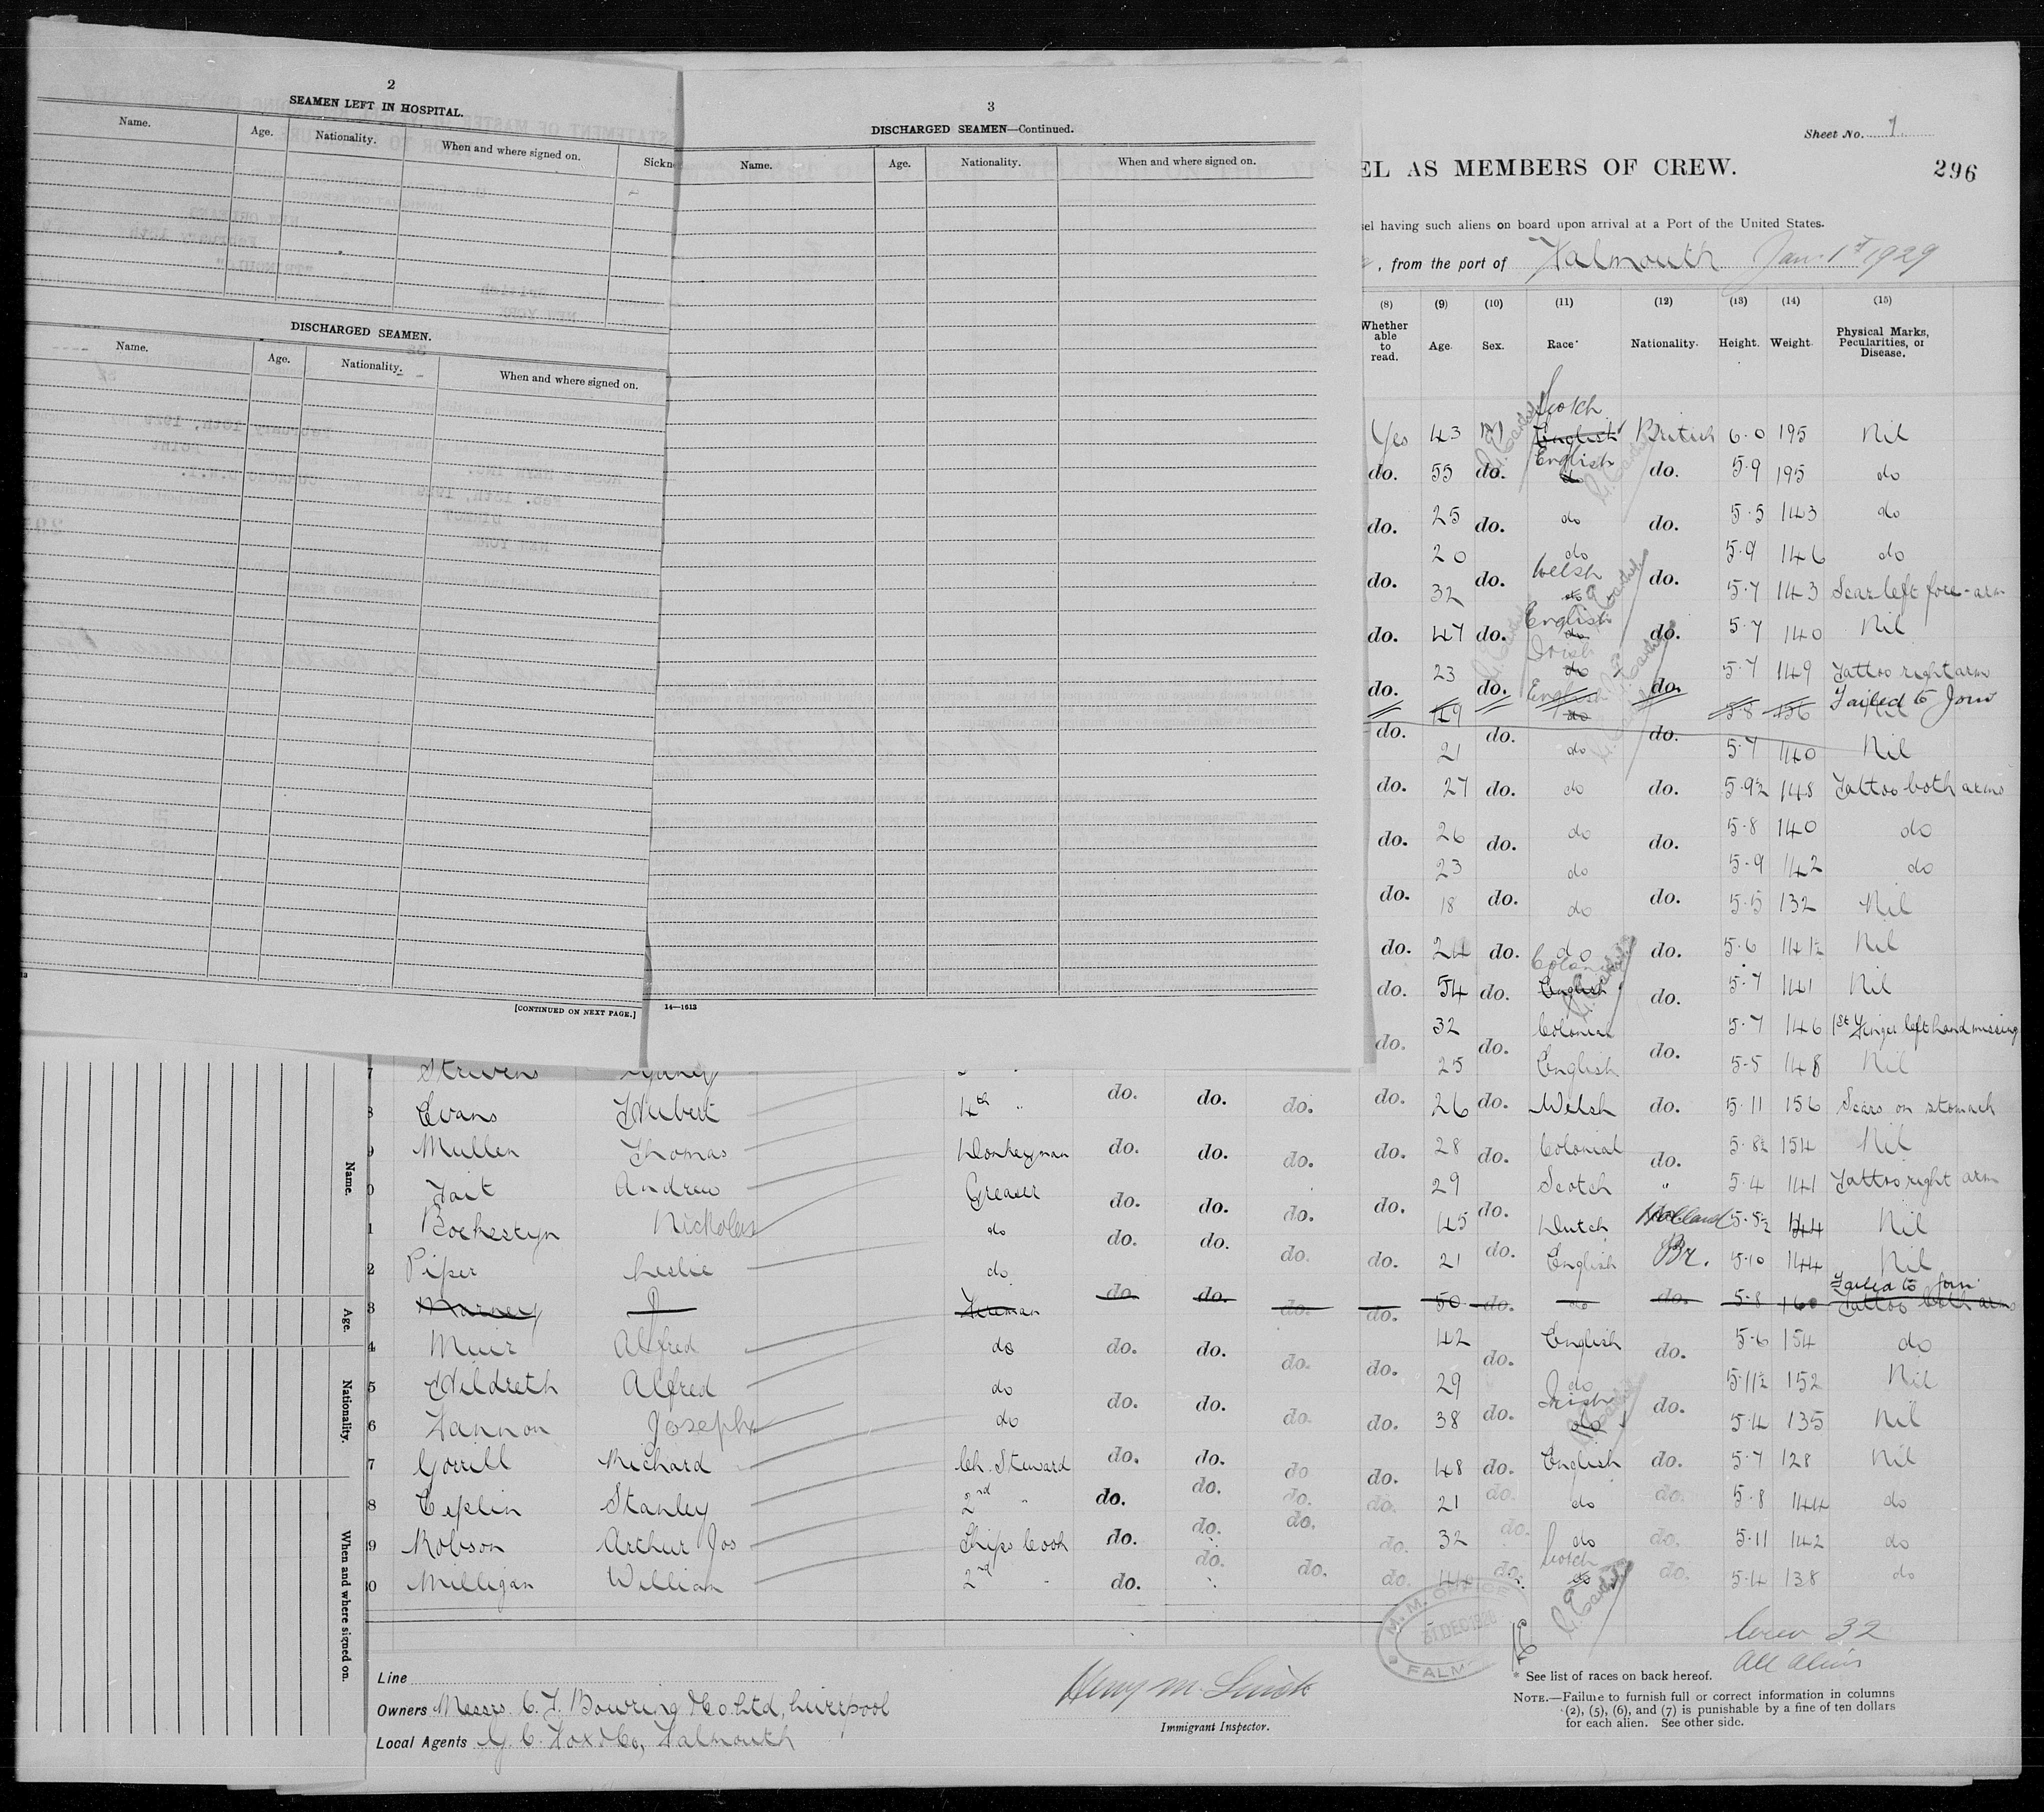 2
SEAMEN LEFT IN HOSPITAL.
Name. Age. Nationality. When and where signed on. Sickn
DISCHARGED SEAMEN.
Name. Age. Nationality. When and where signed on.
[CONTINUED ON NEXT PAGE.]
3
DISCHARGED SEAMEN—Continued.
Name. Age. Nationality. When and where signed on.
14—1613
Sheet No. 1
EL AS MEMBERS OF CREW.
296
sel having such aliens on board upon arrival at a Port of the United States.
, from the port of Falmouth Jan 1st 1929
(8) (9) (10) (11) (12) (13) (14) (15)
Whether able to read. Age. Sex. Race* Nationality. Height. Weight. Physical Marks, Pecularities, or Disease.
Scotch
Yes 43 M English British 6-0 195 Nil
English
do. 55 do. do do. 5-9 195 do
do. 25 do. do do. 5-5 143 do
20 do 5-9 146 do
Welsh
do. 32 do. do do. 5-7 143 Scar left fore-arm
English
do. 47 do. do do. 5-7 140 Nil
Irish
do. 23 do. do do. 5-7 149 Tattoo right arm
English Failed to Join
49 do 5-8 156 Nil
do. 21 do. do do. 5-7 140 Nil
do. 27 do. do do. 5-9½ 148 Tattoo both arms
do. 26 do. do do. 5-8 140 do
23 do 5-9 142 do
do. 18 do. do do. 5-5 132 Nil
do. 24 do. do do. 5-6 141½ Nil
do. 54 do. English do. 5-7 141 Nil
do. 32 do. Colonial do. 5-7 146 1st Finger left hand missing
25 English 5-5 148 Nil
7 Strivens Sydney
8 Evans Hubert 4th " do. do. do. do. 26 do. Welsh do. 5-11 156 Scars on stomach
9 Mullen Thomas Donkeyman do. do. do. do. 28 do. Colonial do. 5-8½ 154 Nil
0 Tait Andrew Greaser do. do. do. do. 29 do. Scotch " 5-4 141 Tattoo right arm
1 Bockestyn Nickolas do do. do. do. do. 45 do. Dutch Holland 5-5½ 144 Nil
2 Piper Leslie do 21 English Br. 5-10 144 Nil
Failed to Join
3 Marney J Fireman do. do. do. do. 50 do. do do. 5-8 160 Tattoo both arms
4 Muir Alfred do do. do. do. do. 42 do. English do. 5-6 154 do
5 Hildreth Alfred do 29 do 5-11½ 152 Nil
Irish
6 Lannon Joseph do do. do. do. do. 38 do. do do. 5-4 135 Nil
7 Gorrill Richard Ch. Steward do. do. do do. 48 do. English do. 5-7 128 Nil
8 Ceplin Stanley 2nd " do. do. do. do. 21 do. do do. 5-8 144 do
9 Robson Arthur Jos Ships Cook do. do. do. do. 32 do. do do. 5-11 142 do
Scotch
0 Milligan William 2nd " do. do. do. do. 44 do. do do. 5-4 138 do
Name.
Age.
Nationality.
When and where signed on.
M. M. OFFICE
31 DEC 1928
FALM
Crew 32
All alien
Line
Owners Messrs C. T. Bowring & Co Ltd, Liverpool
Local Agents G. C. Fox & Co, Falmouth
Henry M Smith
Immigrant Inspector.
* See list of races on back hereof.
NOTE.—Failure to furnish full or correct information in columns
(2), (5), (6), and (7) is punishable by a fine of ten dollars
for each alien. See other side.